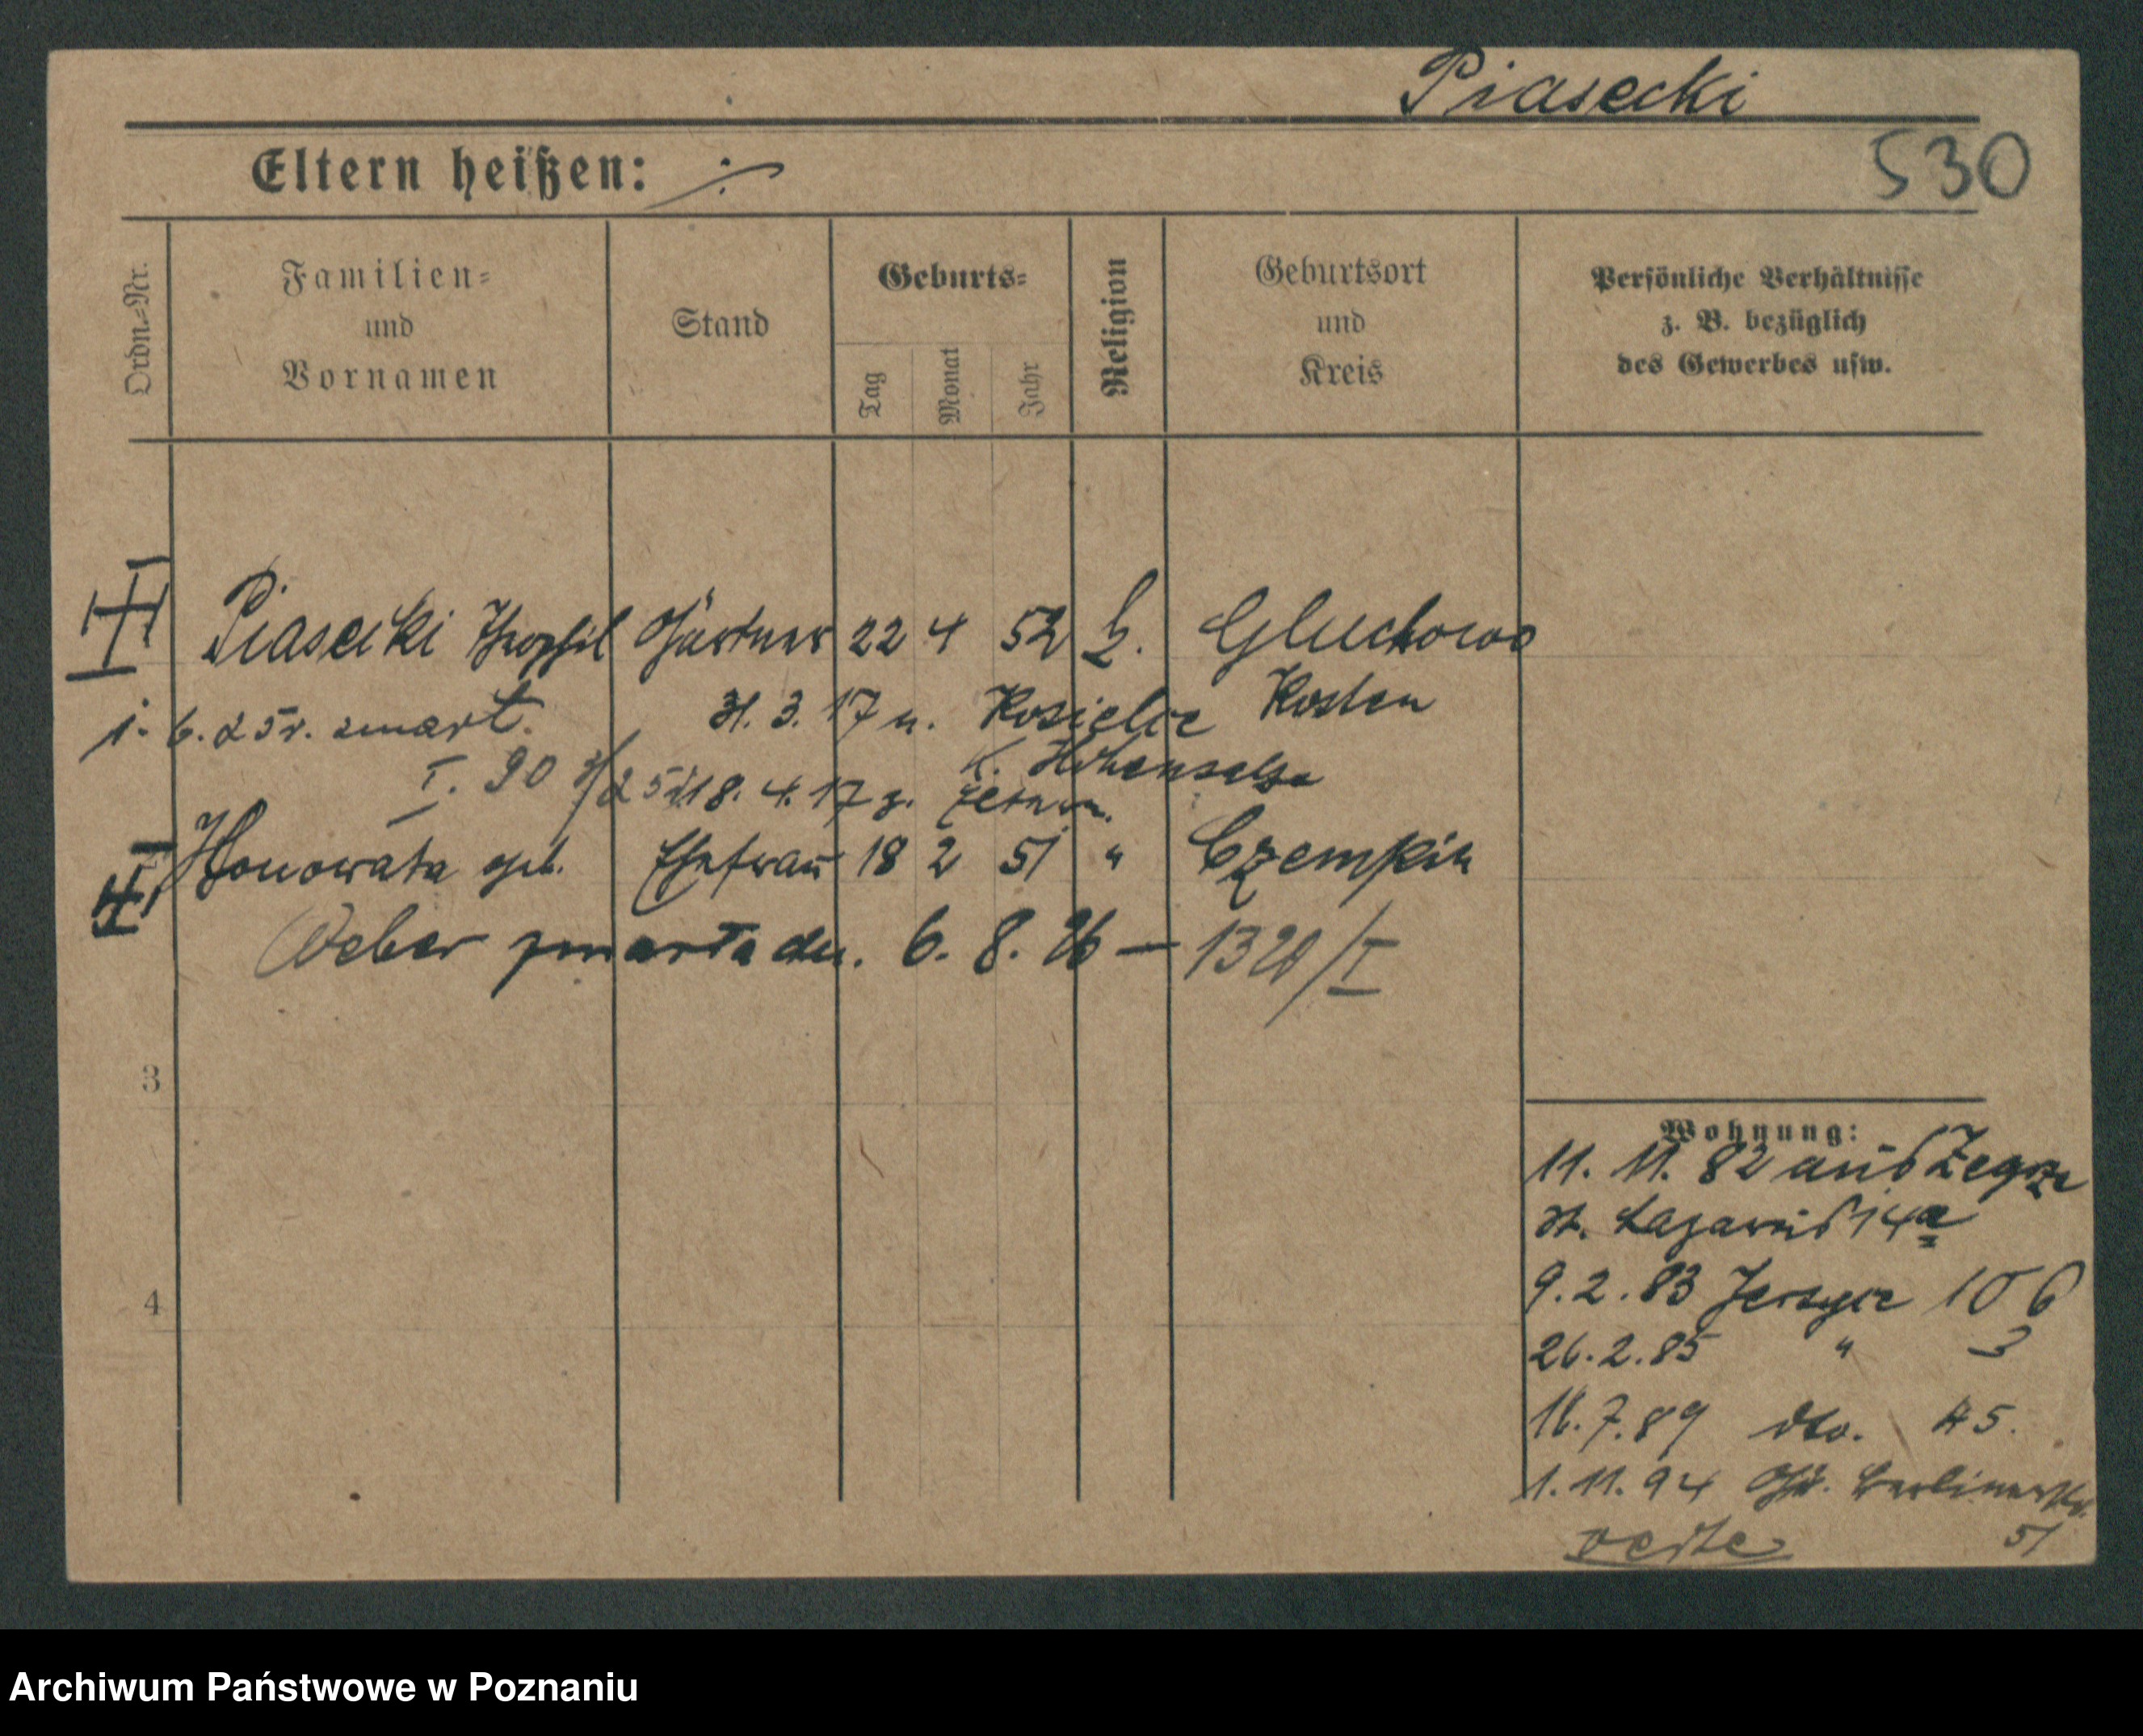 Piasecki
530
Eltern heißen: ·/·
Ordn.-Nr.
Familien-
und
Vornamen
Stand
Geburts-
Tag
Monat
Jahr
Religion
Geburtsort
und
Kreis
Persönliche Verhältnisse
z. B. bezüglich
des Gewerbes usw.
Piasecki Theophil Gärtner 22 4 52 k. Gluchowo
6. 25 r. zmarł. 31. 3. 17 n. Kosielce Kosten
I. 90 K. Hohensalza
18. 4. 17 z.
Honorata geb. Ehefrau 18 2 51 " Czempin
Weber zmarła dn. 6. 8. 26 — 1320/I
3
4
Wohnung:
11. 11. 82 aus Zegrze
St. Lazarus 14a
9. 2. 83 Jersyce 106
26. 2. 85 " 3
16. 7. 89 dto. 45.
1. 11. 94 Gr. Berlinerstr.
51